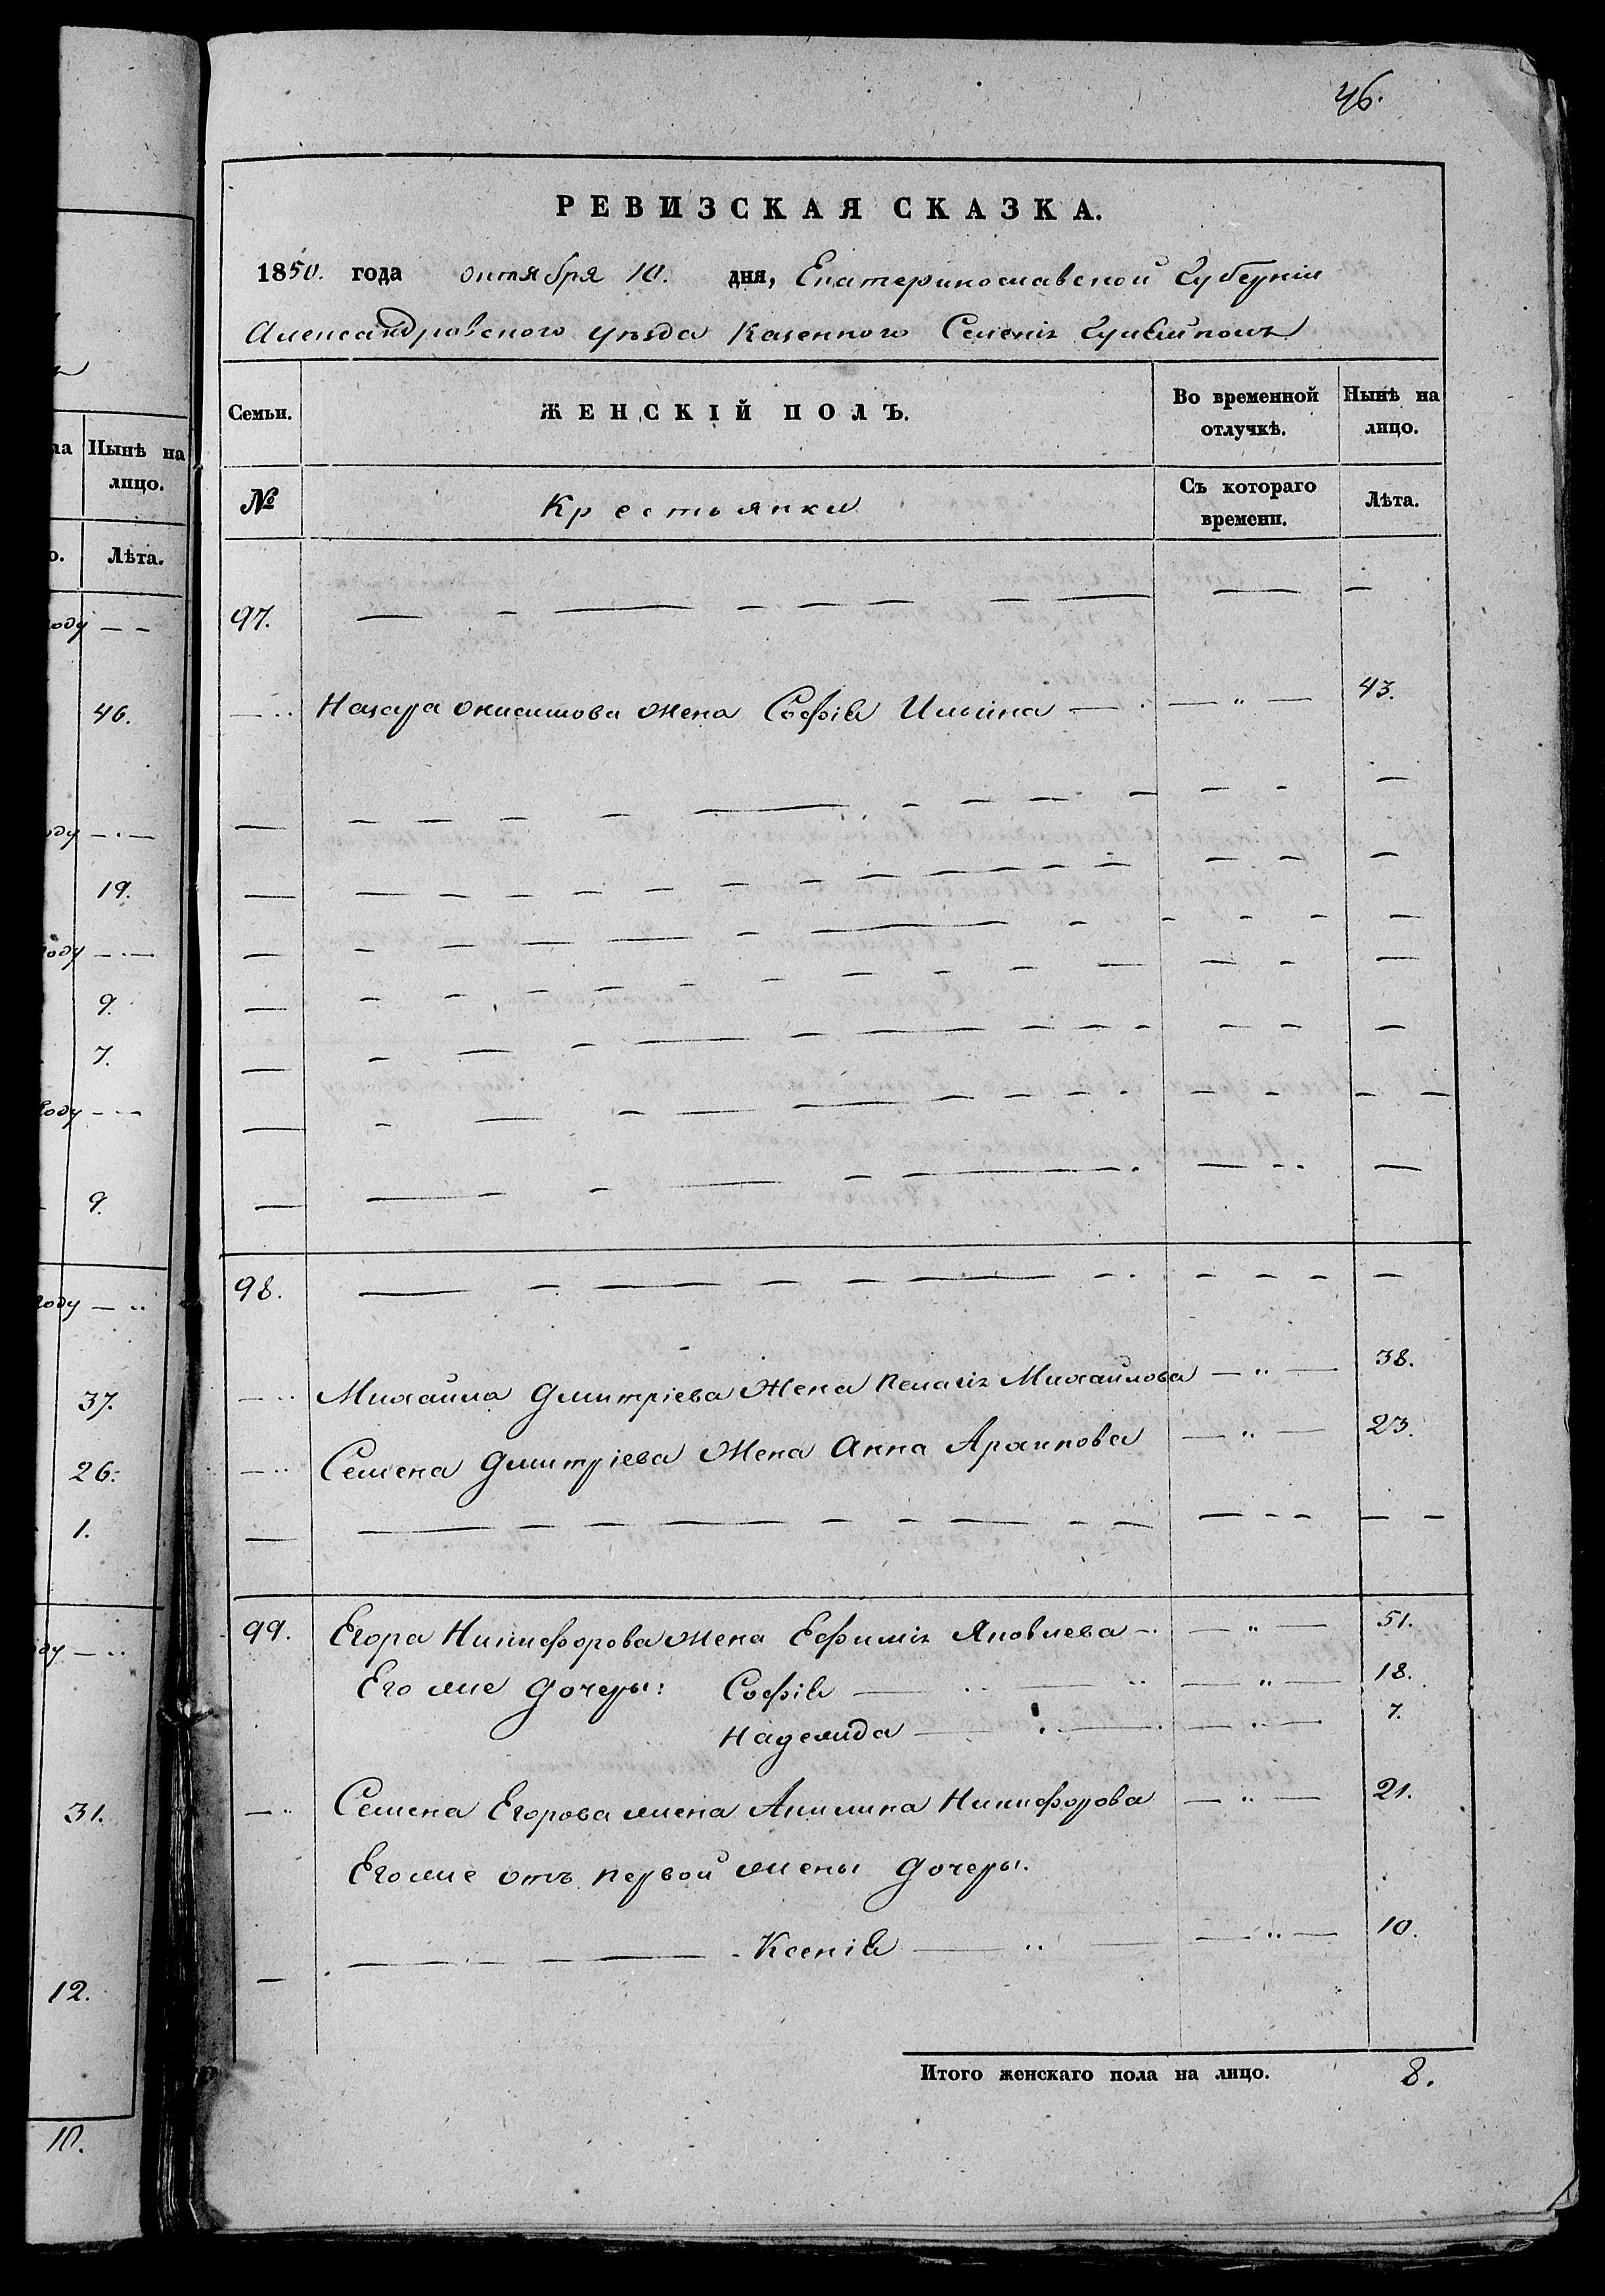 46.
РЕВИЗСКАЯ СКАЗКА.
1850. года октября 10. дня, Екатеринославской Губерніи
Александровского уѣзда Казенного Селенія Гуляйполя
Семьи. ЖЕНСКІЙ ПОЛЪ. Во временной отлучкѣ. Нынѣ на лицо.
№ Крестьянки Съ котораго времени. Лѣта.
97. — — — — — — — — — —
— Назара Онисимова жена Софія Ильина — — „ — 43.
98. — — — — — — — — — —
— Михайла Дмитріева Жена Пелагія Михайлова — „ — 38.
— Семена Дмитріева Жена Анна — „ — 23.
99. Егора Никифорова жена Ефимія Яковлева — — „ — 51.
Его же дочеры: Софія — — „ — 18.
Надежда — — „ — 7.
— Семена Егорова жена Акилина Никифорова — „ — 21.
Его же отъ первой жены дочеры.
— Ксенія — — „ — 10.
Итого женскаго пола на лицо. 8.
Нынѣ на
лицо.
Лѣта.
оду — —
46.
оду — . —
19.
году — . —
9.
7.
году — . —
9.
году — ..
37.
26.
1.
ду — ..
31.
12.
10.